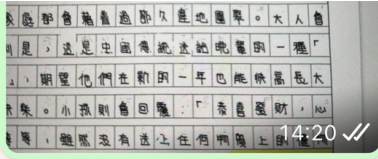 家庭都會藉着過節久違地團聚。大人會
則是,這是中國傳統送祝晚輩的一種「
」,期望他們在新的一年也能快高長大
快樂。小孩則會回覆「恭喜發財,心
雖然沒有送上任何物質上的
14:20